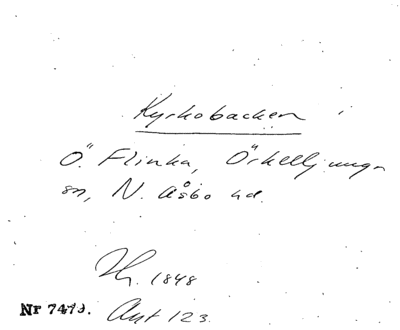 Kyrkobacken
Ö. Flinka, Örkelljunga
sn, N. Åsbo hd.
1848
Nr 7473. Akt 123.